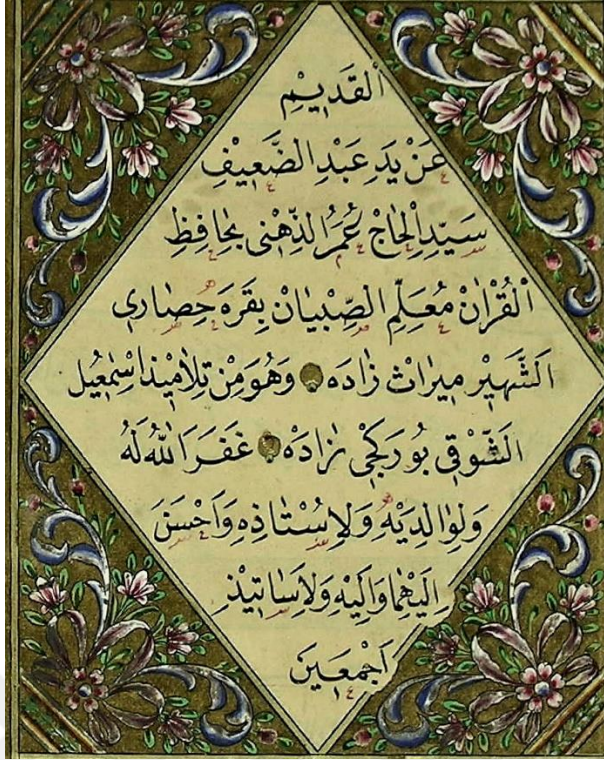 اَلقَدِيْمِ
عَنْ يَدِ عَبْدِ الضَّعِيْفِ
سَيِّدِ الْحَاجْ عُمَرُ الذِّهْنِى بِحَافِظِ
اْلقُرْاٰنْ مُعَلِّمِ الصِّبْيَانْ بِقَرَه حِصَارِى
اَلشَّهِيْر مِيرَاثْ زَادَه وَهُوَ مِنْ تِلَامِيْذ اِسْمٰعِيل
اَلشَّوْقِى بُورَكْجِى زَادَهْ غَفَرَ اللّٰهُ لَهُ
وَلِوَالِدَيْهِ وَلِاُسْتَاذِهِ وَاَحْسَنَ
اِلَيْهُمَا وَاِلَيْهِ وَلِاَسَاتِيْذِ
اَجْمَعِيْنَ